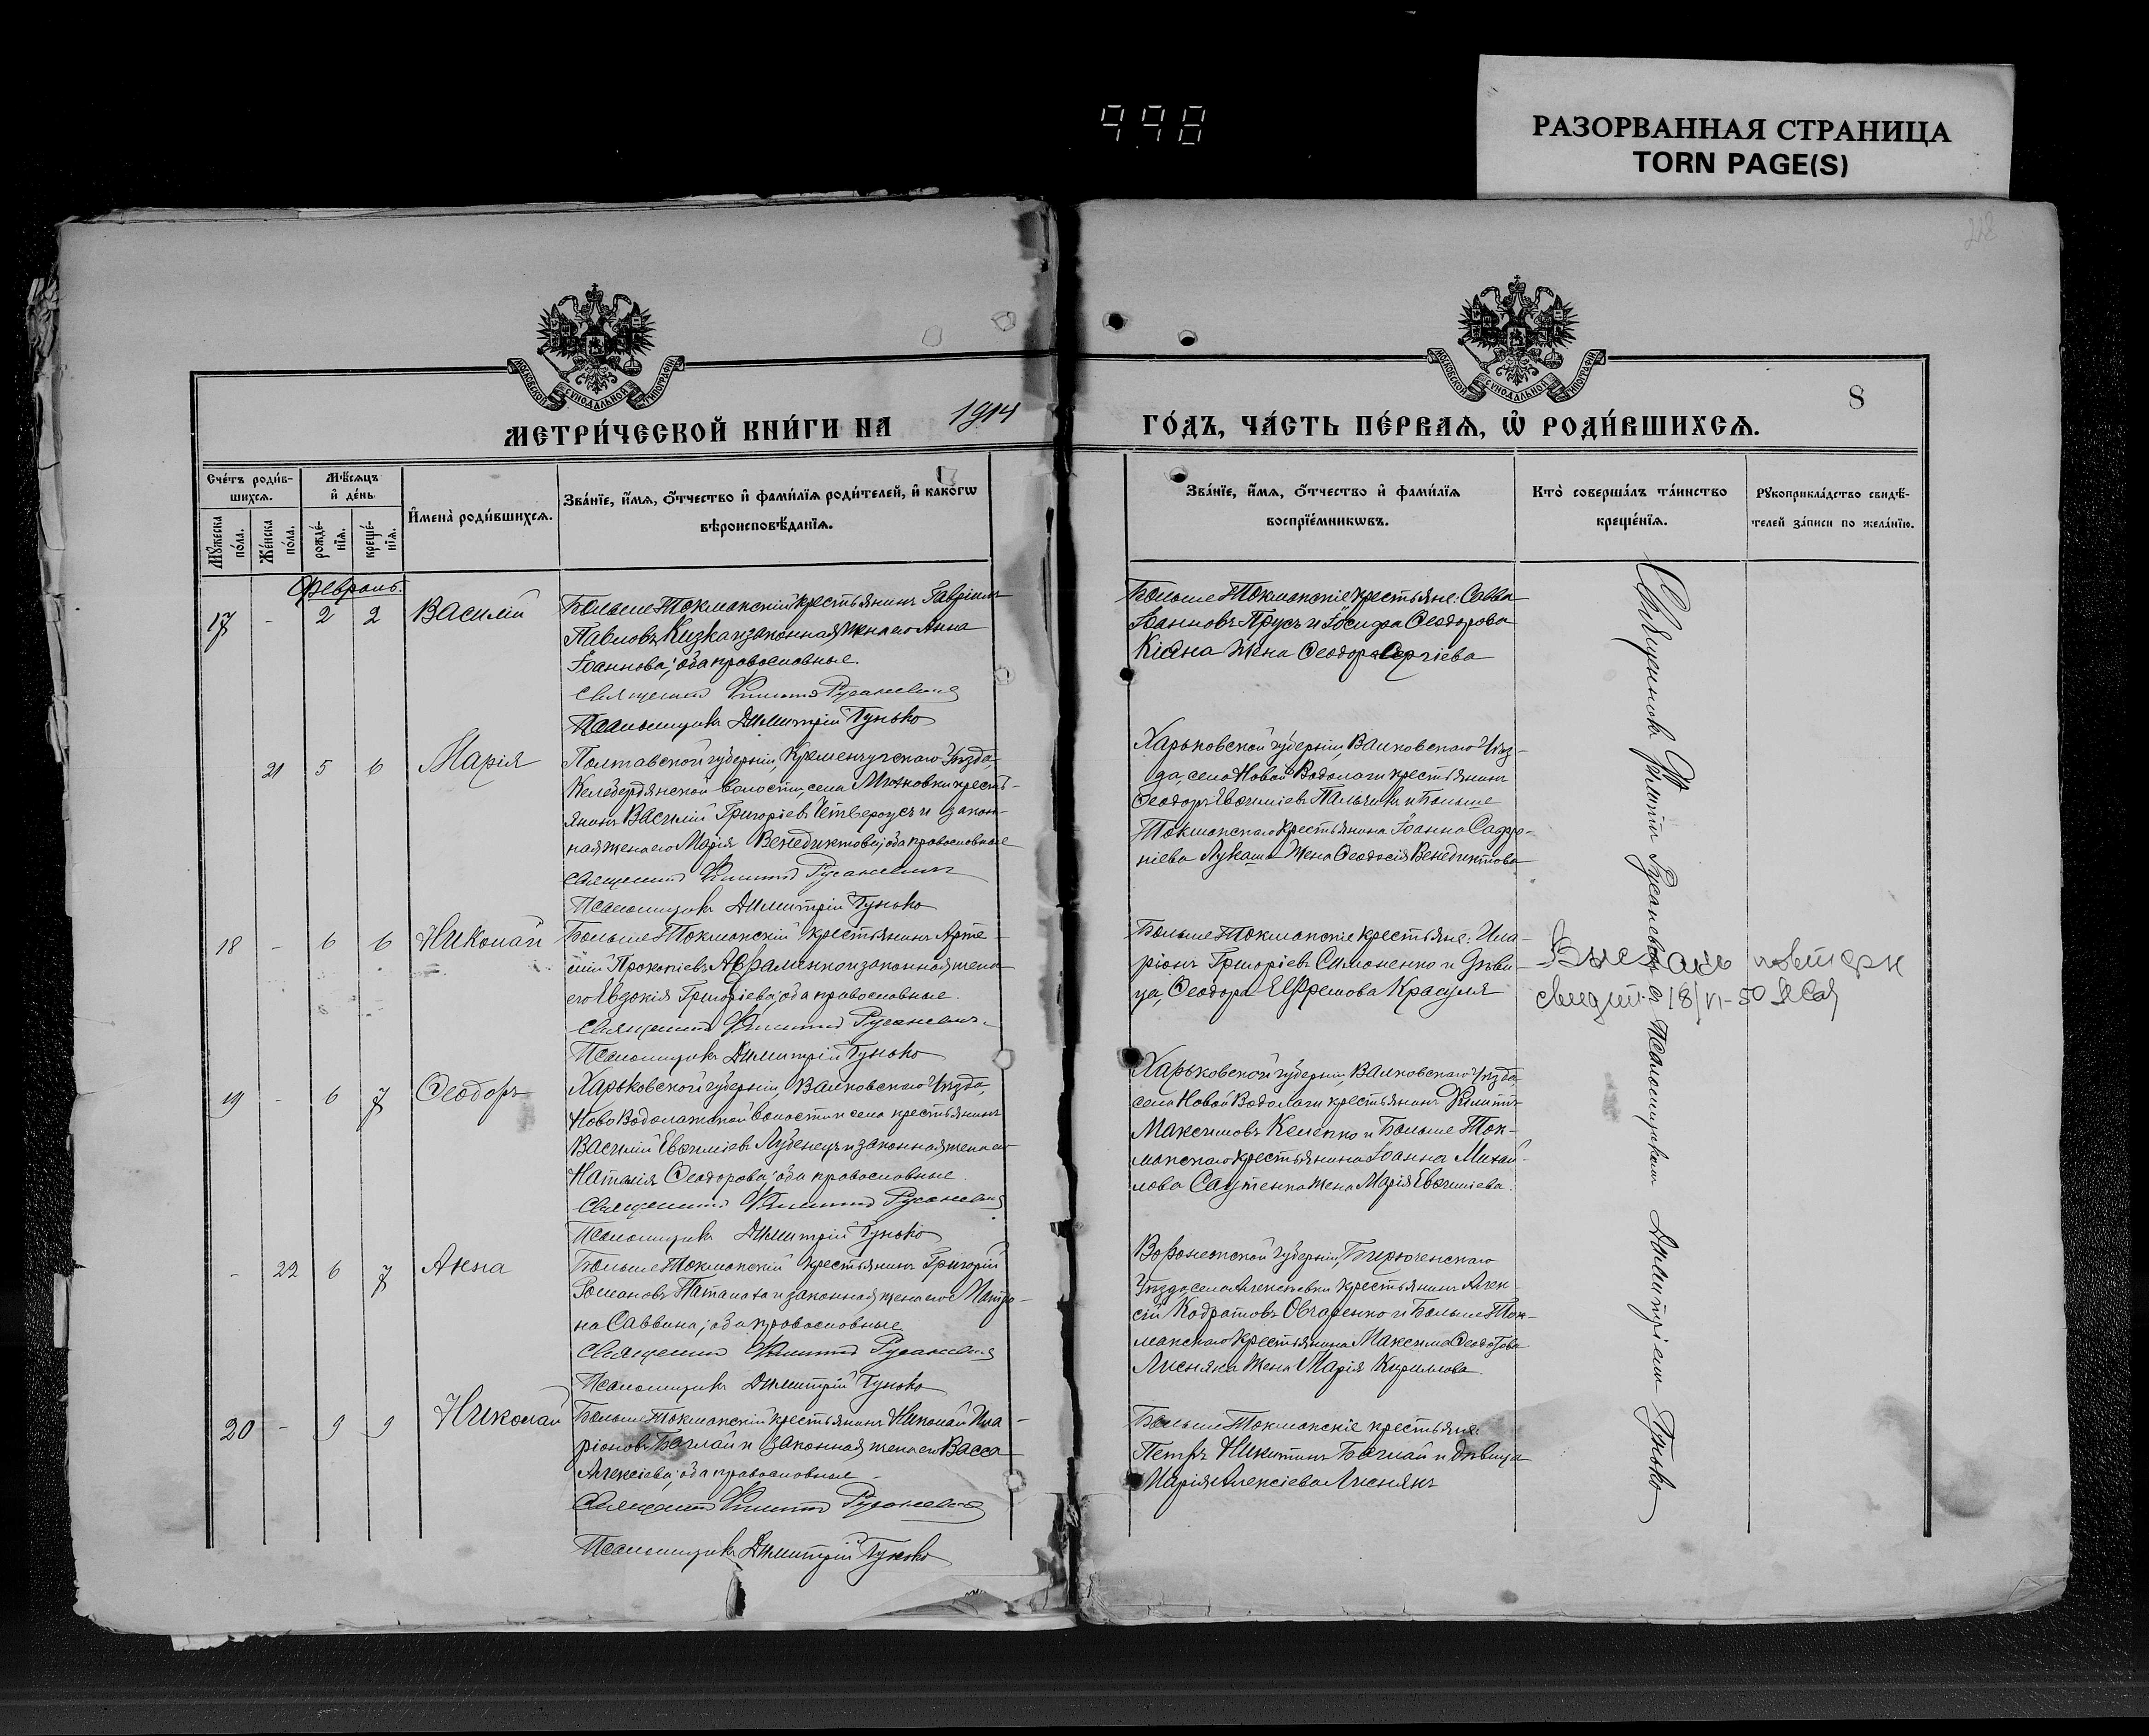 998
РАЗОРВАННАЯ СТРАНИЦА
TORN PAGE(S)
218
МОСКОВСКОЙ СѴНОДАЛЬНОЙ ТИПОГРАФІИ
МОСКОВСКОЙ СѴНОДАЛЬНОЙ ТИПОГРАФІИ
8
МЕТРИ́ЧЕСКОЙ КНИ́ГИ НА 1914 ГО́ДЪ, ЧА́СТЬ ПЕ́РВАѦ, Ѡ҆ РОДИ́ВШИХСѦ.
Сче́тъ роди́в-
шихсѧ.
Мꙋ́жеска по́ла.
Же́нска по́ла.
Мѣ́сѧцъ
и҆ де́нь.
рожде́-
нїѧ.
креще́-
нїѧ.
И҆мена̀ роди́вшихсѧ.
Зва́нїе, и҆́мѧ, ѻ҆́тчество и҆ фами́лїѧ роди́телей, и҆ како́гѡ
вѣроисповѣ́данїѧ.
Зва́нїе, и҆́мѧ, ѻ҆́тчество и҆ фами́лїѧ
воспрїе́мникѡвъ.
Кто̀ соверша́лъ та́инство
креще́нїѧ.
Рꙋкоприкла́дство свидѣ́-
телей за́писи по жела́нїю.
Февраль.
17 - 2 2 Василій
Больше Токмакскій крестьянинъ Гавріилъ
Павловъ Кизка и законная жена его Анна
Іоаннова; оба православные.
Священникъ Филиппъ Русаневичъ
Псаломщикъ Димитрій Гунько
Больше Токмакскіе крестьяне: Савва
Іоанновъ Прусъ и Іосифа Ѳеодорова
Кіяна жена Ѳеодора Сергіева
21 5 6 Марія
Полтавской губерніи, Кременчугскаго уѣзда,
Келебердянской волости, села крестъ-
янинъ Василій Григоріевъ Четвероусъ и закон-
ная жена его Марія Венедиктова; оба православные
Священникъ Филиппъ Русаневичъ
Псаломщикъ Димитрій Гунько
Харьковской губерніи, Валковскаго уѣз-
да, села Новой Водолаги крестьянинъ
Ѳеодоръ Евѳиміевъ Пальчикъ и Больше
Токмакскаго крестьянина Іоанна Софро-
ніева Лукаша жена Ѳеодосія Венедиктова
18 - 6 6 Николай
Больше Токмакскій крестьянинъ Арте-
мій Прокопіевъ Авраменко и законная жена
его Евдокія Григоріева; оба православные.
Священникъ Филиппъ Русаневичъ
Псаломщикъ Димитрій Гунько
Больше Токмакскіе крестьяне: Ила-
ріонъ Григоріевъ Симоненко и дѣви-
ца, Ѳеодора Ефремова Красуля
свидет. 18/VI-50
19 - 6 7 Ѳеодоръ
Харьковской губерніи, Валковскаго уѣзда,
Ново Водолажской волости и села крестьянинъ
Василій Евѳиміевъ Лубенецъ и законная жена его
Наталія Ѳеодорова; оба православные.
Священникъ Филиппъ Русаневичъ
Псаломщикъ Димитрій Гунько
Харьковской губерніи, Валковскаго уѣзда,
села Новой Водолаги крестьянинъ Филиппъ
Максимовъ Келепко и Больше Ток-
макскаго крестьянина Іоанна Михай-
лова Саутенка жена Марія Евѳиміева.
- 22 6 7 Анна
Больше Токмакскій крестьянинъ Григорій
Романовъ Паталаха и законная жена его Матро-
на Саввина; оба православные
Священникъ Филиппъ Русаневичъ
Псаломщикъ Димитрій Гунько
Воронежской губерніи, Бирюченскаго
уѣзда, села Алексѣевки крестьянинъ Алек-
сій Кодратовъ Овчаренко и Больше Ток-
макскаго крестьянина Максима Ѳеодотова
Лисняка жена Марія Кириллова.
20 - 9 9 Николай
Больше Токмакскій крестьянинъ Николай Ила-
ріоновъ Баглай и законная жена его Васса
Алексіева; оба православные
Священникъ Филиппъ Русаневичъ
Псаломщикъ Димитрій Гунько
Больше Токмакскіе крестьяне:
Петръ Никитинъ Баглай и дѣвица
Марія Алексіева Лиснякъ
Священникъ Филиппъ Русаневичъ съ Псаломщикомъ Димитріемъ Гунько